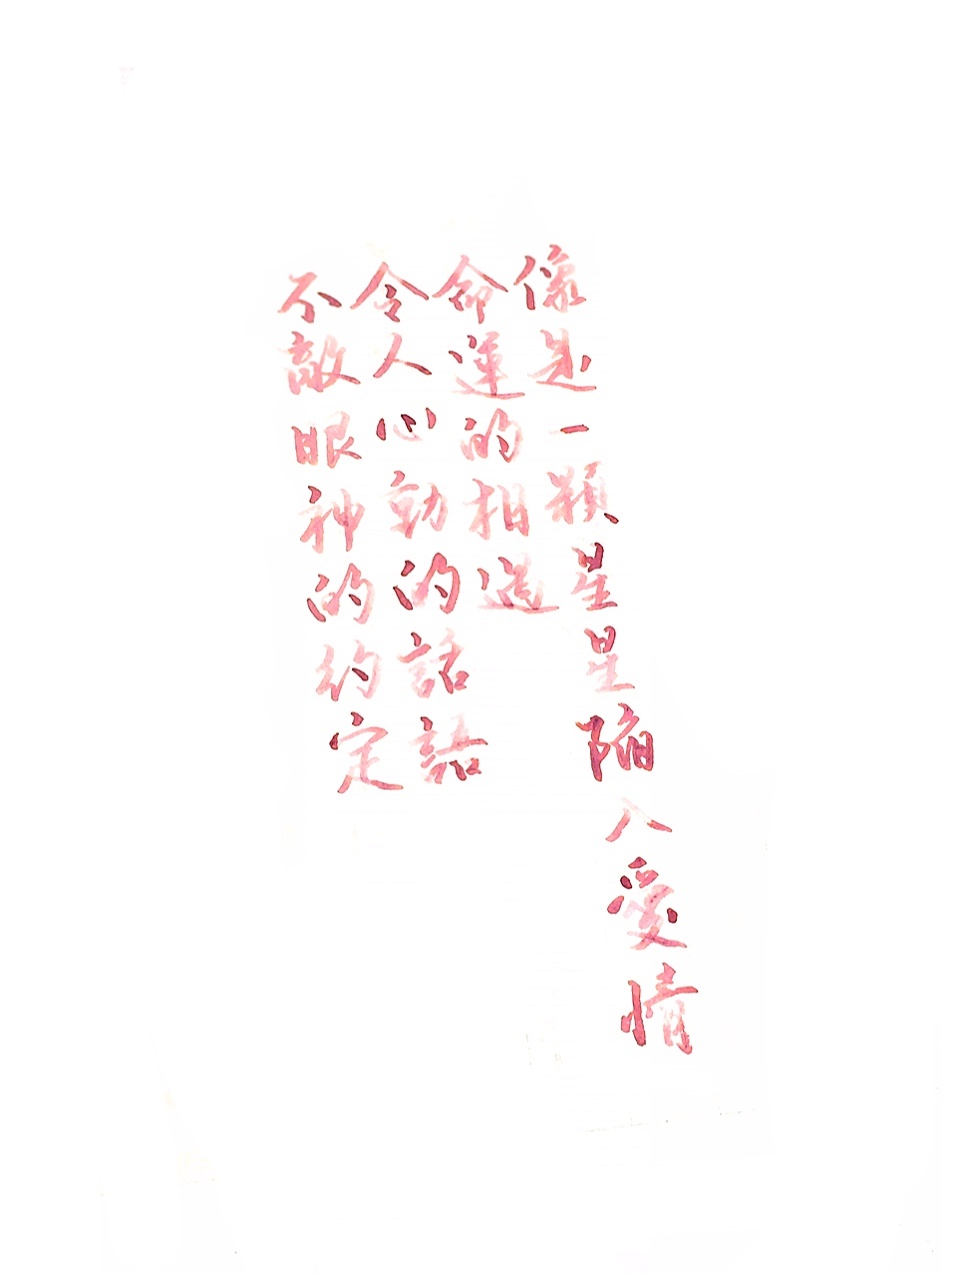 像是一顆星星陷入愛情
命運的相遇
令人心動的話語
不敵眼神的約定